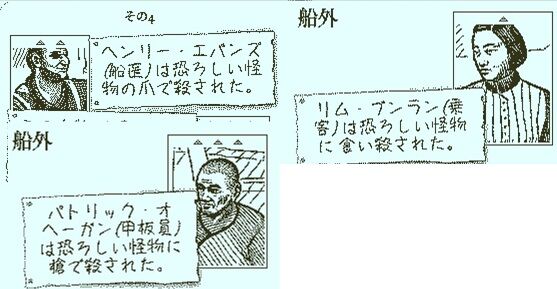 その4
ヘンリー・エバンズ
(船医)は恐ろしい怪
物の爪で殺された。
船外
リム・ブンラン(乗
客)は恐ろしい怪物
に食い殺された。
船外
パトリック・オ
ヘーガン(甲板員)
は恐ろしい怪物に
槍で殺された。